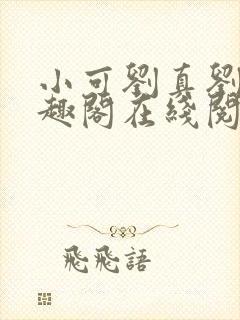 小可劉真劉
趣閣在綫閱
飛飛語